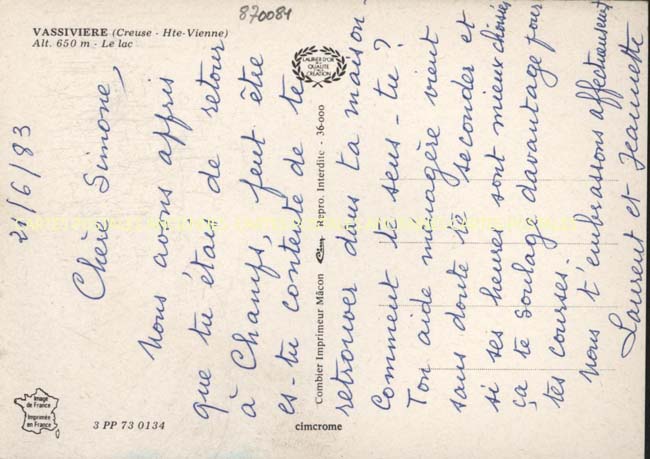 870081
VASSIVIERE (Creuse - Hte-Vienne)
Alt. 650 m - Le lac
LAURIER D'OR
DE LA
QUALITÉ
DE LA
CRÉATION
21/6/83
Chère Simone,
Nous avons appris
que tu étais de retour
à Champs, peut être
es-tu contente de te
retrouver dans ta maison -
Comment te sens-tu ?
Ton aide ménagère vient
sans doute te seconder et
si ses heures sont mieux choisies
ça te soulage davantage pour
tes courses.
nous t'embrassons affectueusement
Laurent et Jeannette
Combier Imprimeur Mâcon Cim Repro. Interdite - 36-000
Image
de France
Imprimée
en France
3 PP 73 0134
cimcrome